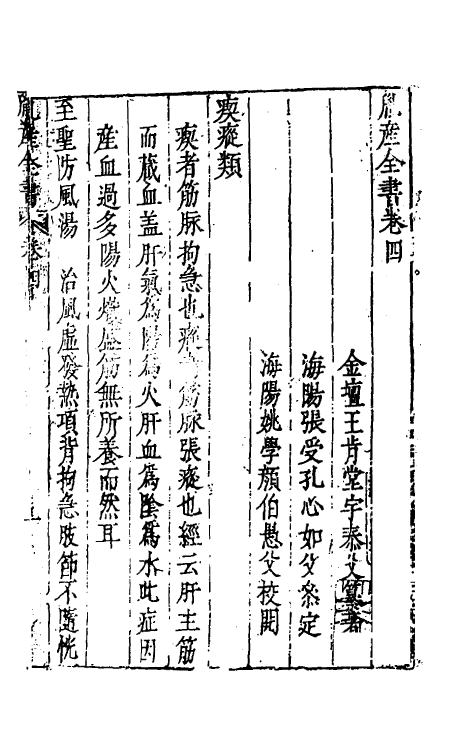 胤産全書卷四
金壇王肯堂宇泰父
海陽張受孔心如父叅定
海陽姚學顔伯愚父校閲
瘈瘲類
瘈者筋脉拘急也瘲筋脉張瘲也經云肝主筋
而藏血盖肝氣為陽為火肝血為陰為水此症因
産血過多陽火熾盛筋無所養而然耳
至聖防風湯 治風虛發熱項背拘急肢節不隨恍
胤産全書 卷四